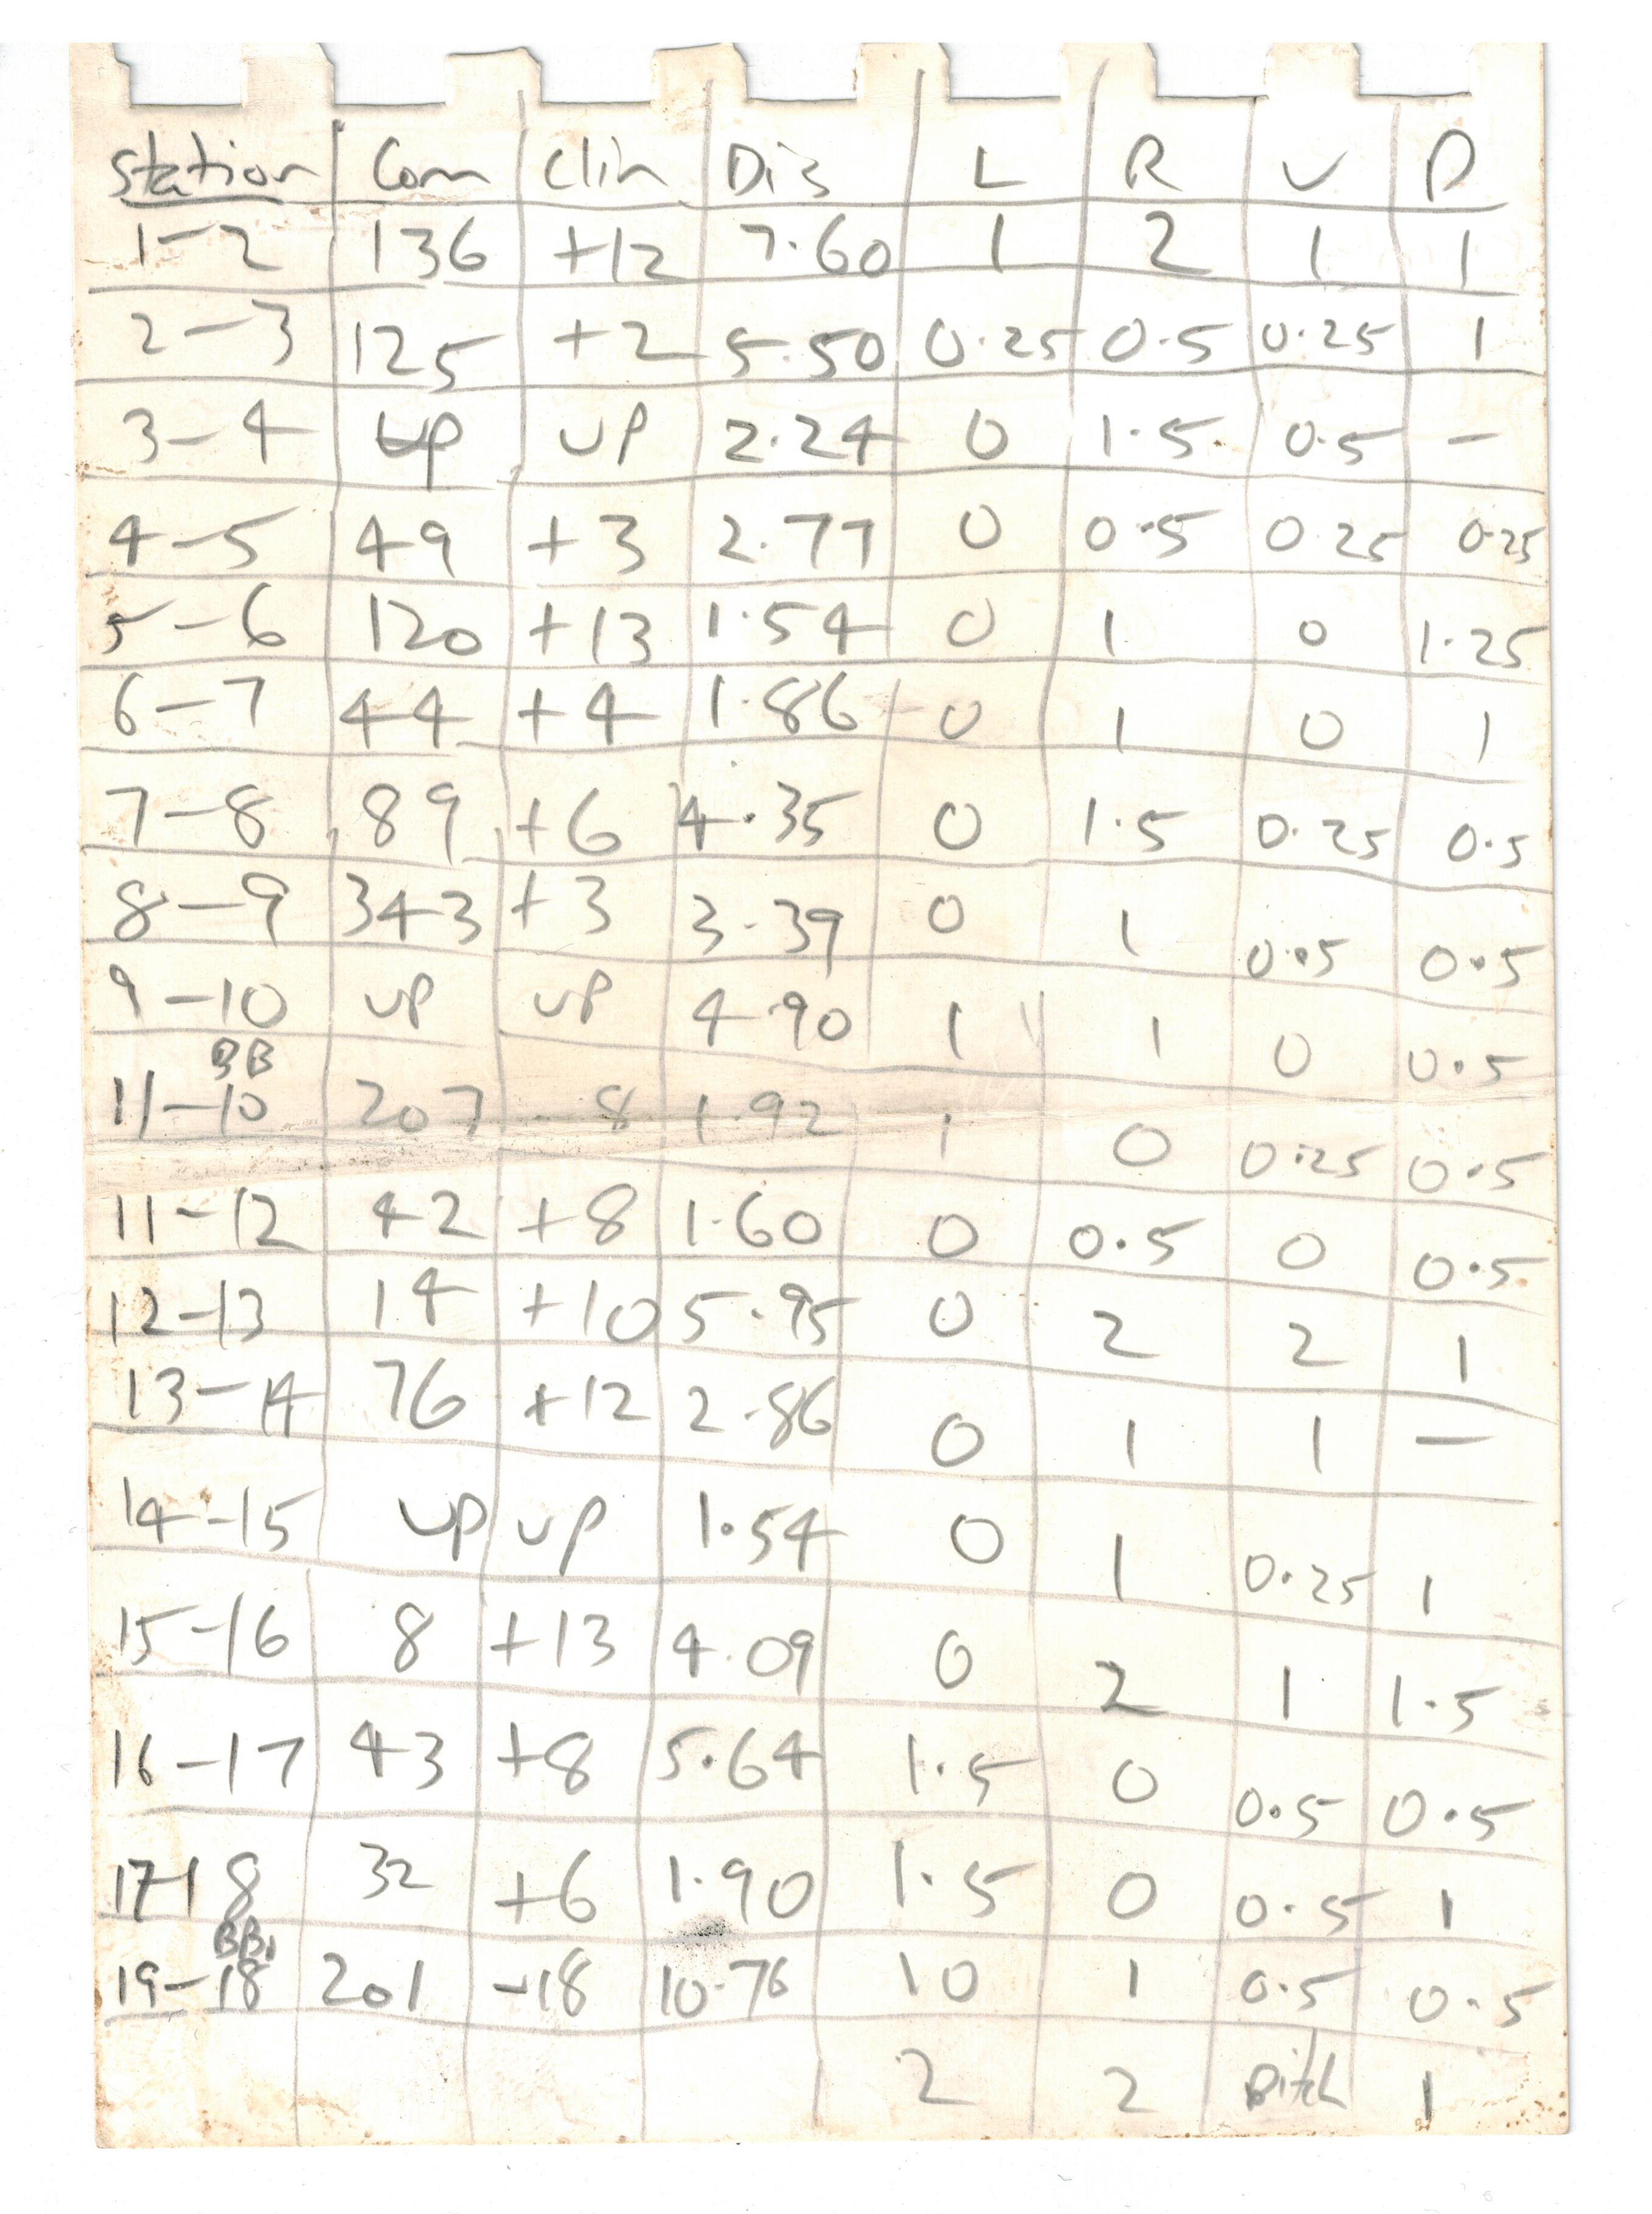 Station Com Clin Dis L R U D
1-2 136 +12 7.60 1 2 1 1
2-3 125 +2 5.50 0.25 0.5 0.25 1
3-4 UP UP 2.24 0 1.5 0.5 -
4-5 49 +3 2.77 0 0.5 0.25 0.25
5-6 120 +13 1.54 0 1 0 1.25
6-7 44 +4 1.86 0 1 0 1
7-8 89 +6 4.35 0 1.5 0.25 0.5
8-9 343 +3 3.39 0 1 0.5 0.5
9-10 UP UP 4.90 1 1 0 0.5
BB
11-10 207 -8 1.92 1 0 0.25 0.5
11-12 42 +8 1.60 0 0.5 0 0.5
12-13 14 +10 5.95 0 2 2 1
13-14 76 +12 2.86 0 1 1 -
14-15 UP UP 1.54 0 1 0.25 1
15-16 8 +13 4.09 0 2 1 1.5
16-17 43 +8 5.64 1.5 0 0.5 0.5
17-18 32 +6 1.90 1.5 0 0.5 1
BB.
19-18 201 -18 10.76 10 1 0.5 0.5
2 2 Pitch 1